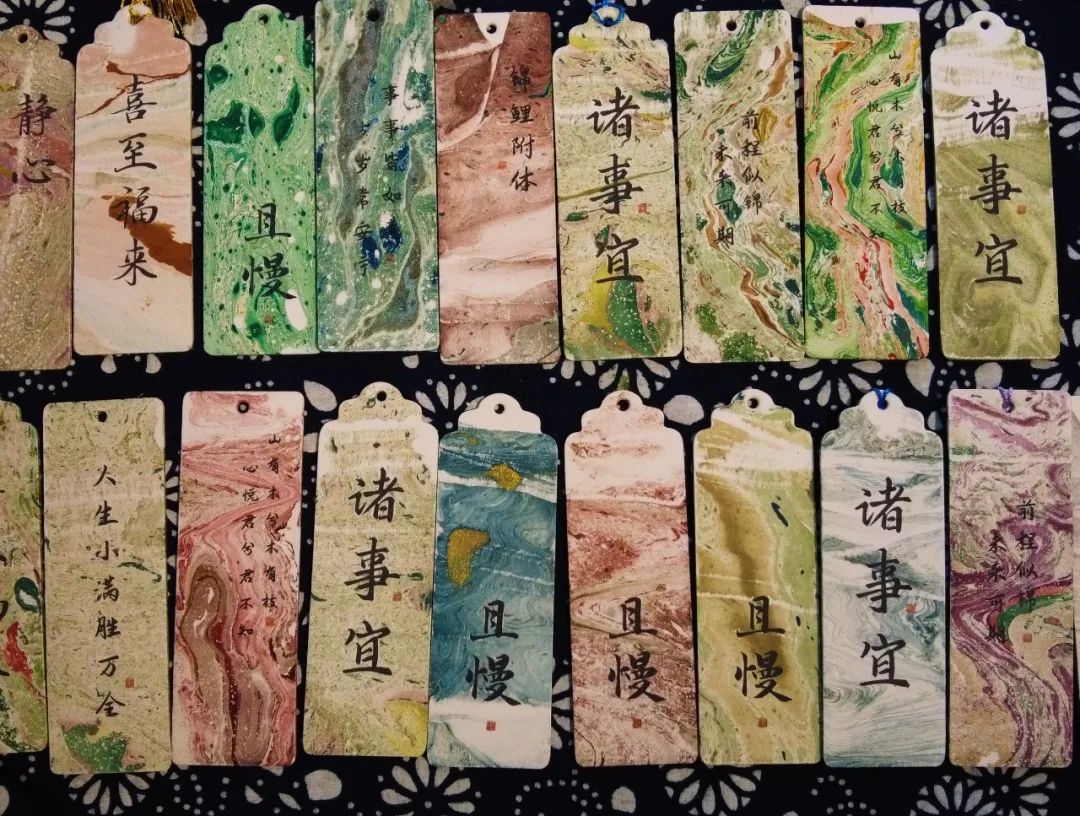 静心
喜至福来
且慢
事事皆如
岁岁常安宁
锦鲤附体
诸事宜
前程似锦
未来可期
山有木兮木有枝
心悦君兮君不
诸事宜
人生小满胜万全
山有木兮木有枝
心悦君兮君不知
诸事宜
且慢
且慢
且慢
诸事宜
前程似锦
未来可期